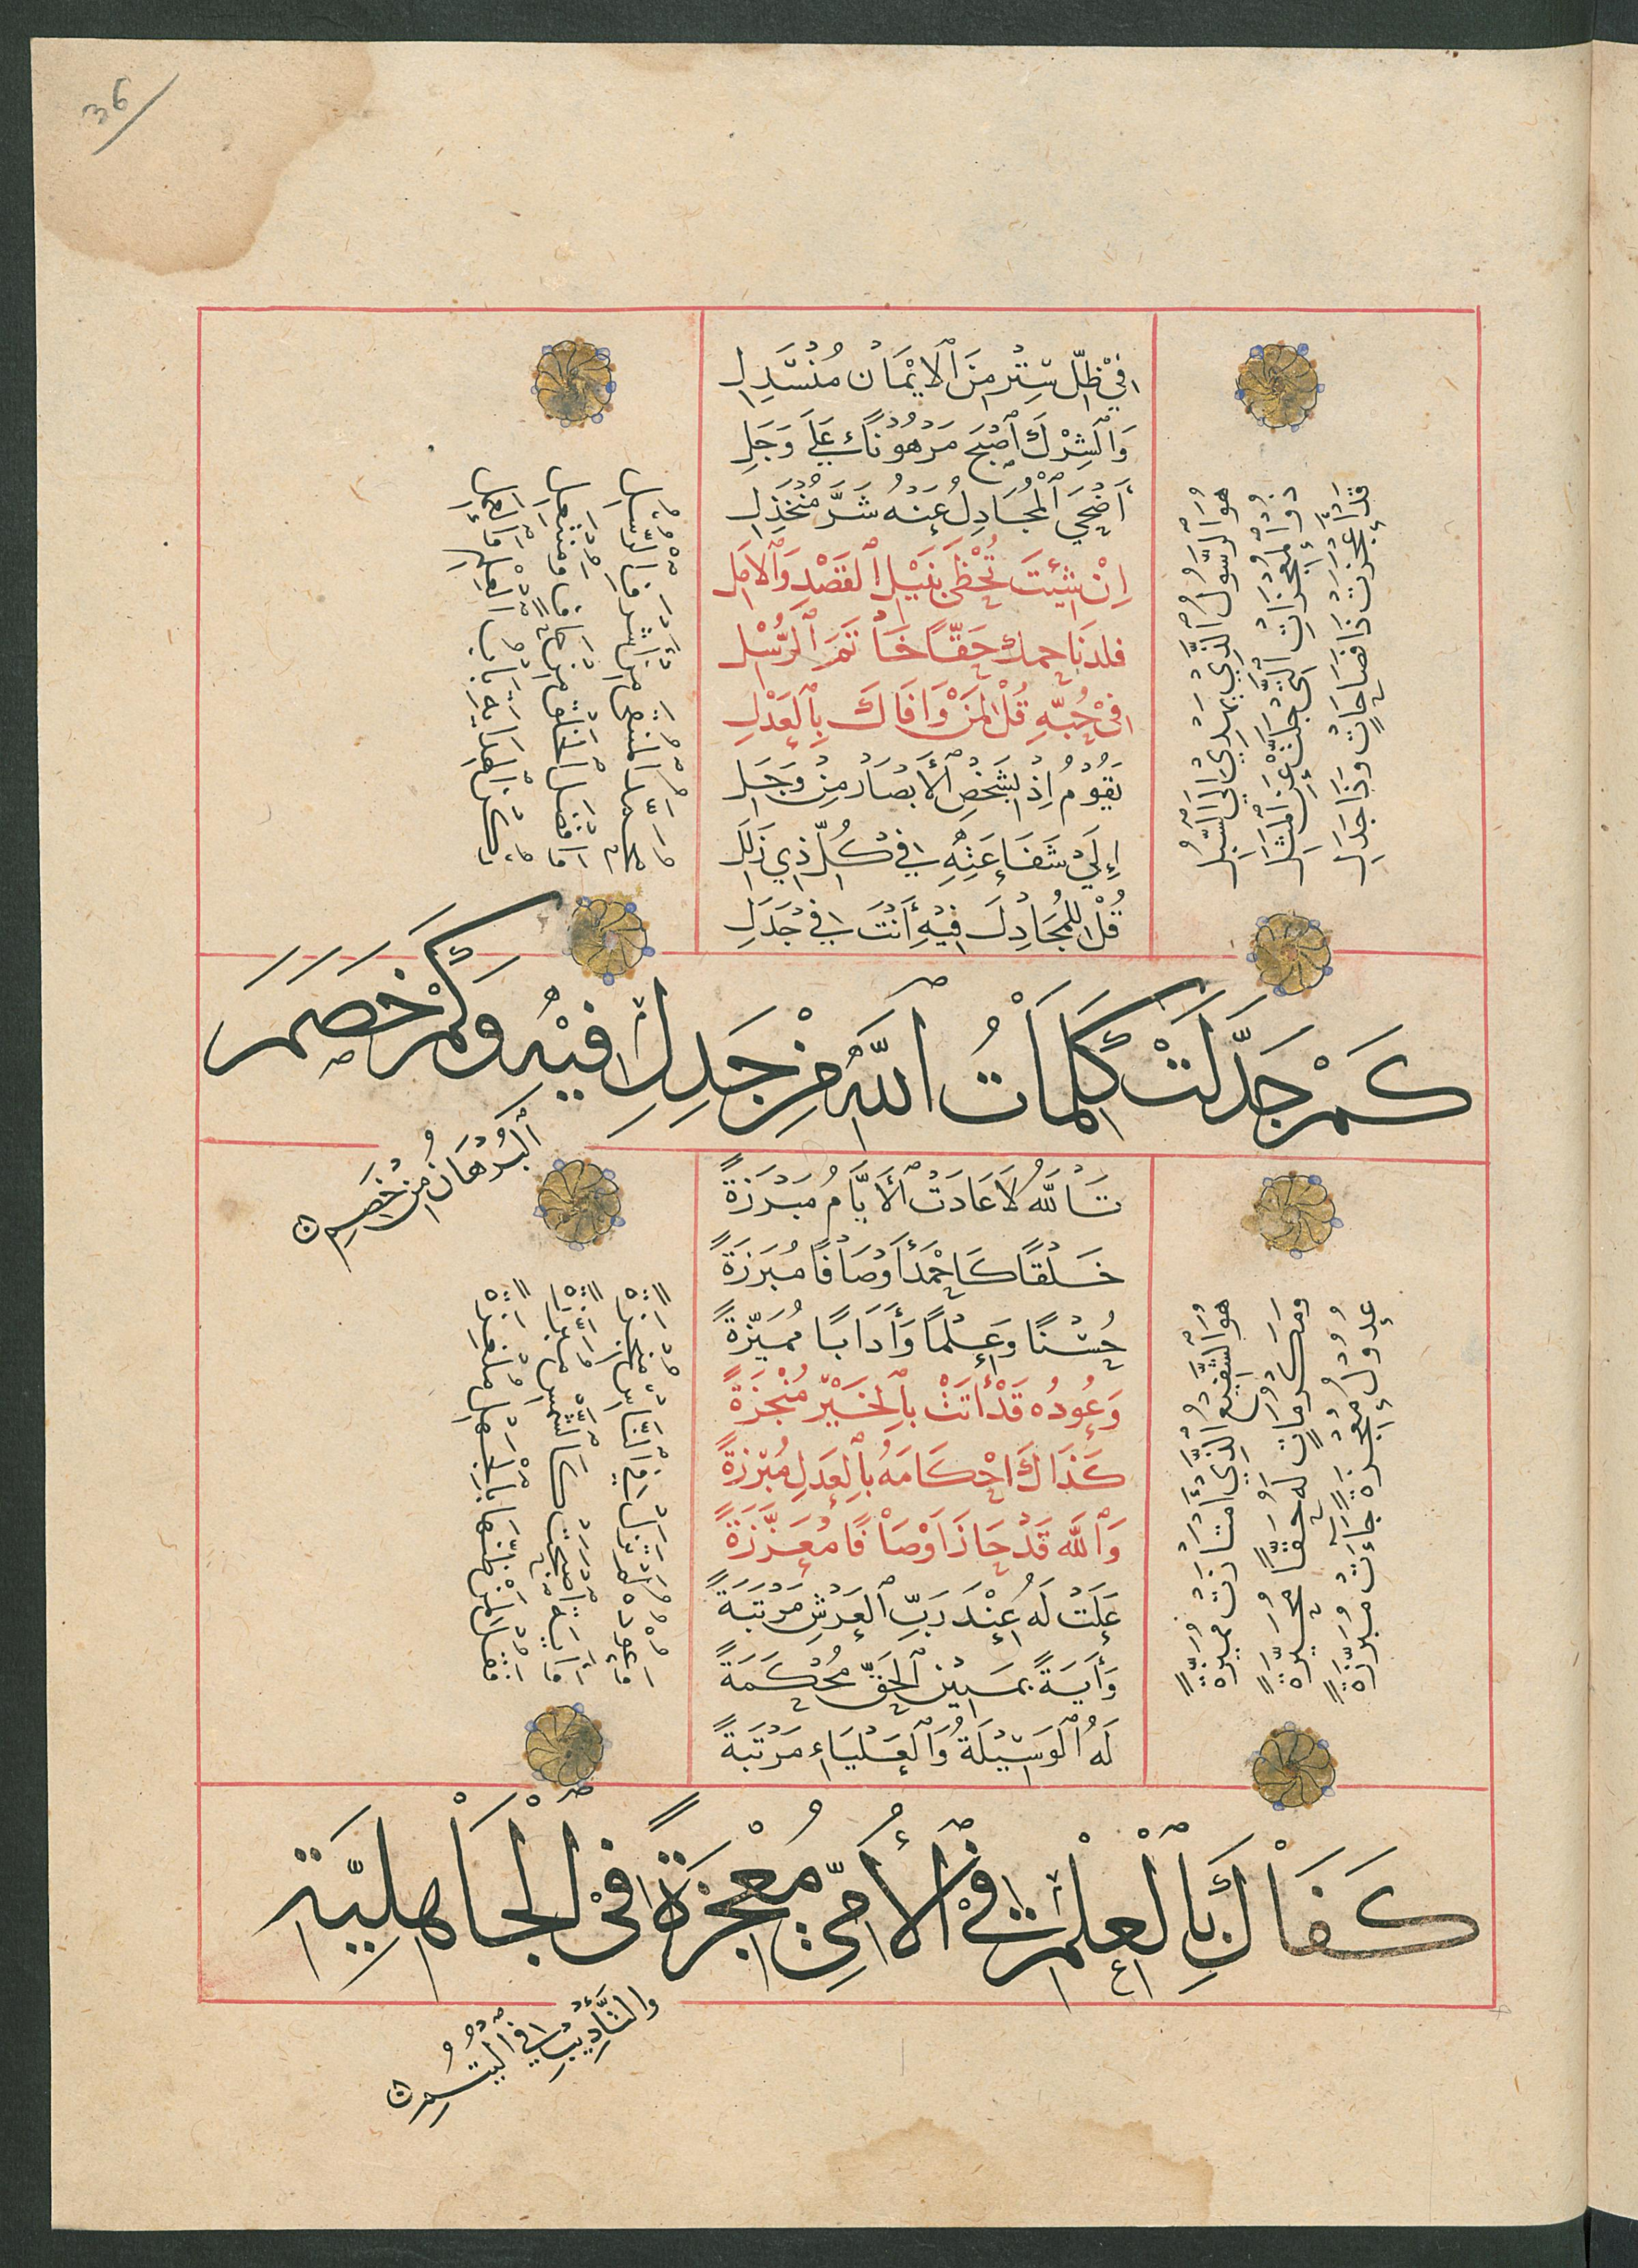 36
في ظلّ ستر من الايمان منسدل
والشرك اصبح مرهونا على وجل
أضحى المجادل عنه شرّ منخذل
ان شئت تحظى بنيل القصد والامل
فلذ باحمد حقّا خاتم الرّسل
في حبّه قل لمن وافاك بالعدل
يقوم اذ تشخص الأبصار من وجل
إلى شفاعته في كلّ ذي زلل
قل للمجادل فيه أنت في جدل
هو الرّسول الّذي يهدي الى السّبل
ذو المعجزات الّتي جلّت عن المثل
قد أعجزت ذا فصاحات وذا جدل
محمّد المنتقى من اشرف الرّسل
ما افضل الخلق من حاف ومنتعل
كنز الهداية باب العلم والعمل
كَمْ جَدَّلَتْ كَلِمَاتُ ٱللَّهِ مِنْ جَدِلِ فِيْهِ وَكَمْ خَصَمَ
ٱلبُرْهَانُ مِنْ خَصِمِ
تالله لا عادت الأيّام مبرزة
خلقا كاحمد أوصافا مبرزة
حسنا وعلما وأدابا مميّزة
وعوده قد أتت بالخير منجزة
كذاك احكامه بالعدل مبرزة
والله قد حاز اوصافا معزّزة
علت له عند ربّ العرش مرتبة
وأية بمبين الحقّ محكمة
له الوسيلة والعلياء مرتبة
هو الشّفيع الّذي أمتازت مميزة
ومكرمات له حقّا محيّرة
عدول معجزة جاءت مبرّزة
وعوده لم تزل في النّاس منجزة
أياته اصبحت كالشّمس مبرزة
فقل لمن ظنّها بالجهل ملغزة
كَفَاكَ بِٱلْعِلْمِ فِي ٱلْأُمِّيِّ مُعْجِزَةً فِي ٱلْجَاهِلِيَّةِ
والتَّأْدِيْبِ فِي ٱليُتُمِ